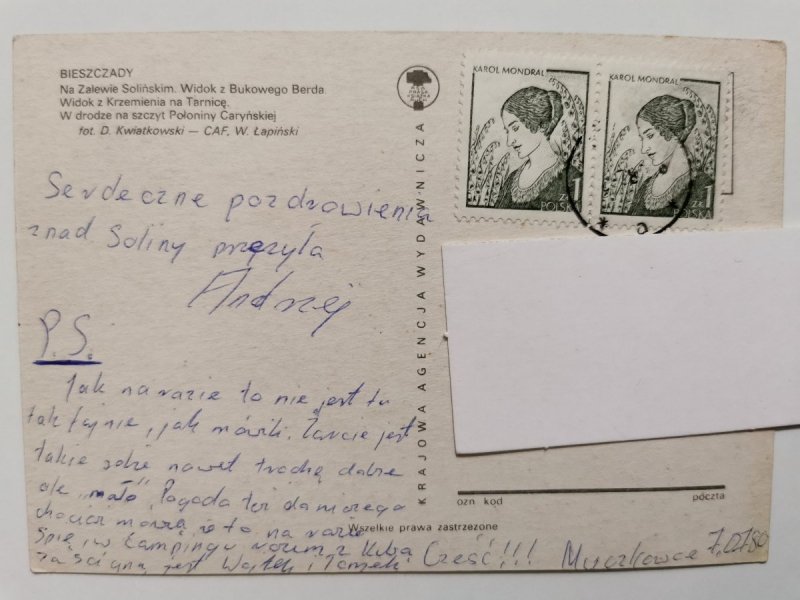 BIESZCZADY
Na Zalewie Solińskim. Widok z Bukowego Berda.
Widok z Krzemienia na Tarnicę.
W drodze na szczyt Połoniny Caryńskiej
fot. D. Kwiatkowski — CAF, W. Łapiński
KAROL MONDRAL
1 ZŁ
POLSKA
KAROL MONDRAL
1 ZŁ
POLSKA
Serdeczne pozdrowienia
znad Soliny przesyła
Andrzej
P.S.
Jak na razie to nie jest tu
tak fajnie, jak mówili. Żarcie jest
takie sobie nawet trochę dobre
ale "mało". Pogoda też do niczego
chociaż mówią, że to na razie
Śpię w Campingu razem z Kubą
za ścianą jest Wojtek i
Cześć!!! Myczkowce 7.07.80
KRAJOWA AGENCJA WYDAWNICZA
ozn kod poczta
Wszelkie prawa zastrzeżone